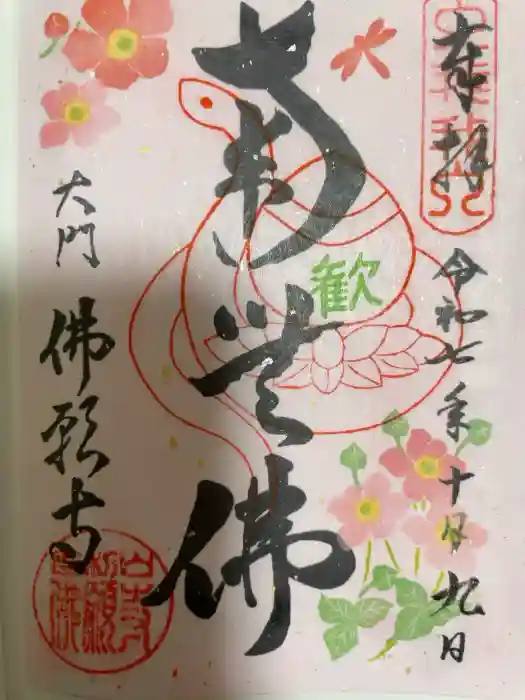 奉拝
令和七年十月九日
南無佛
歓
大門
佛願寺